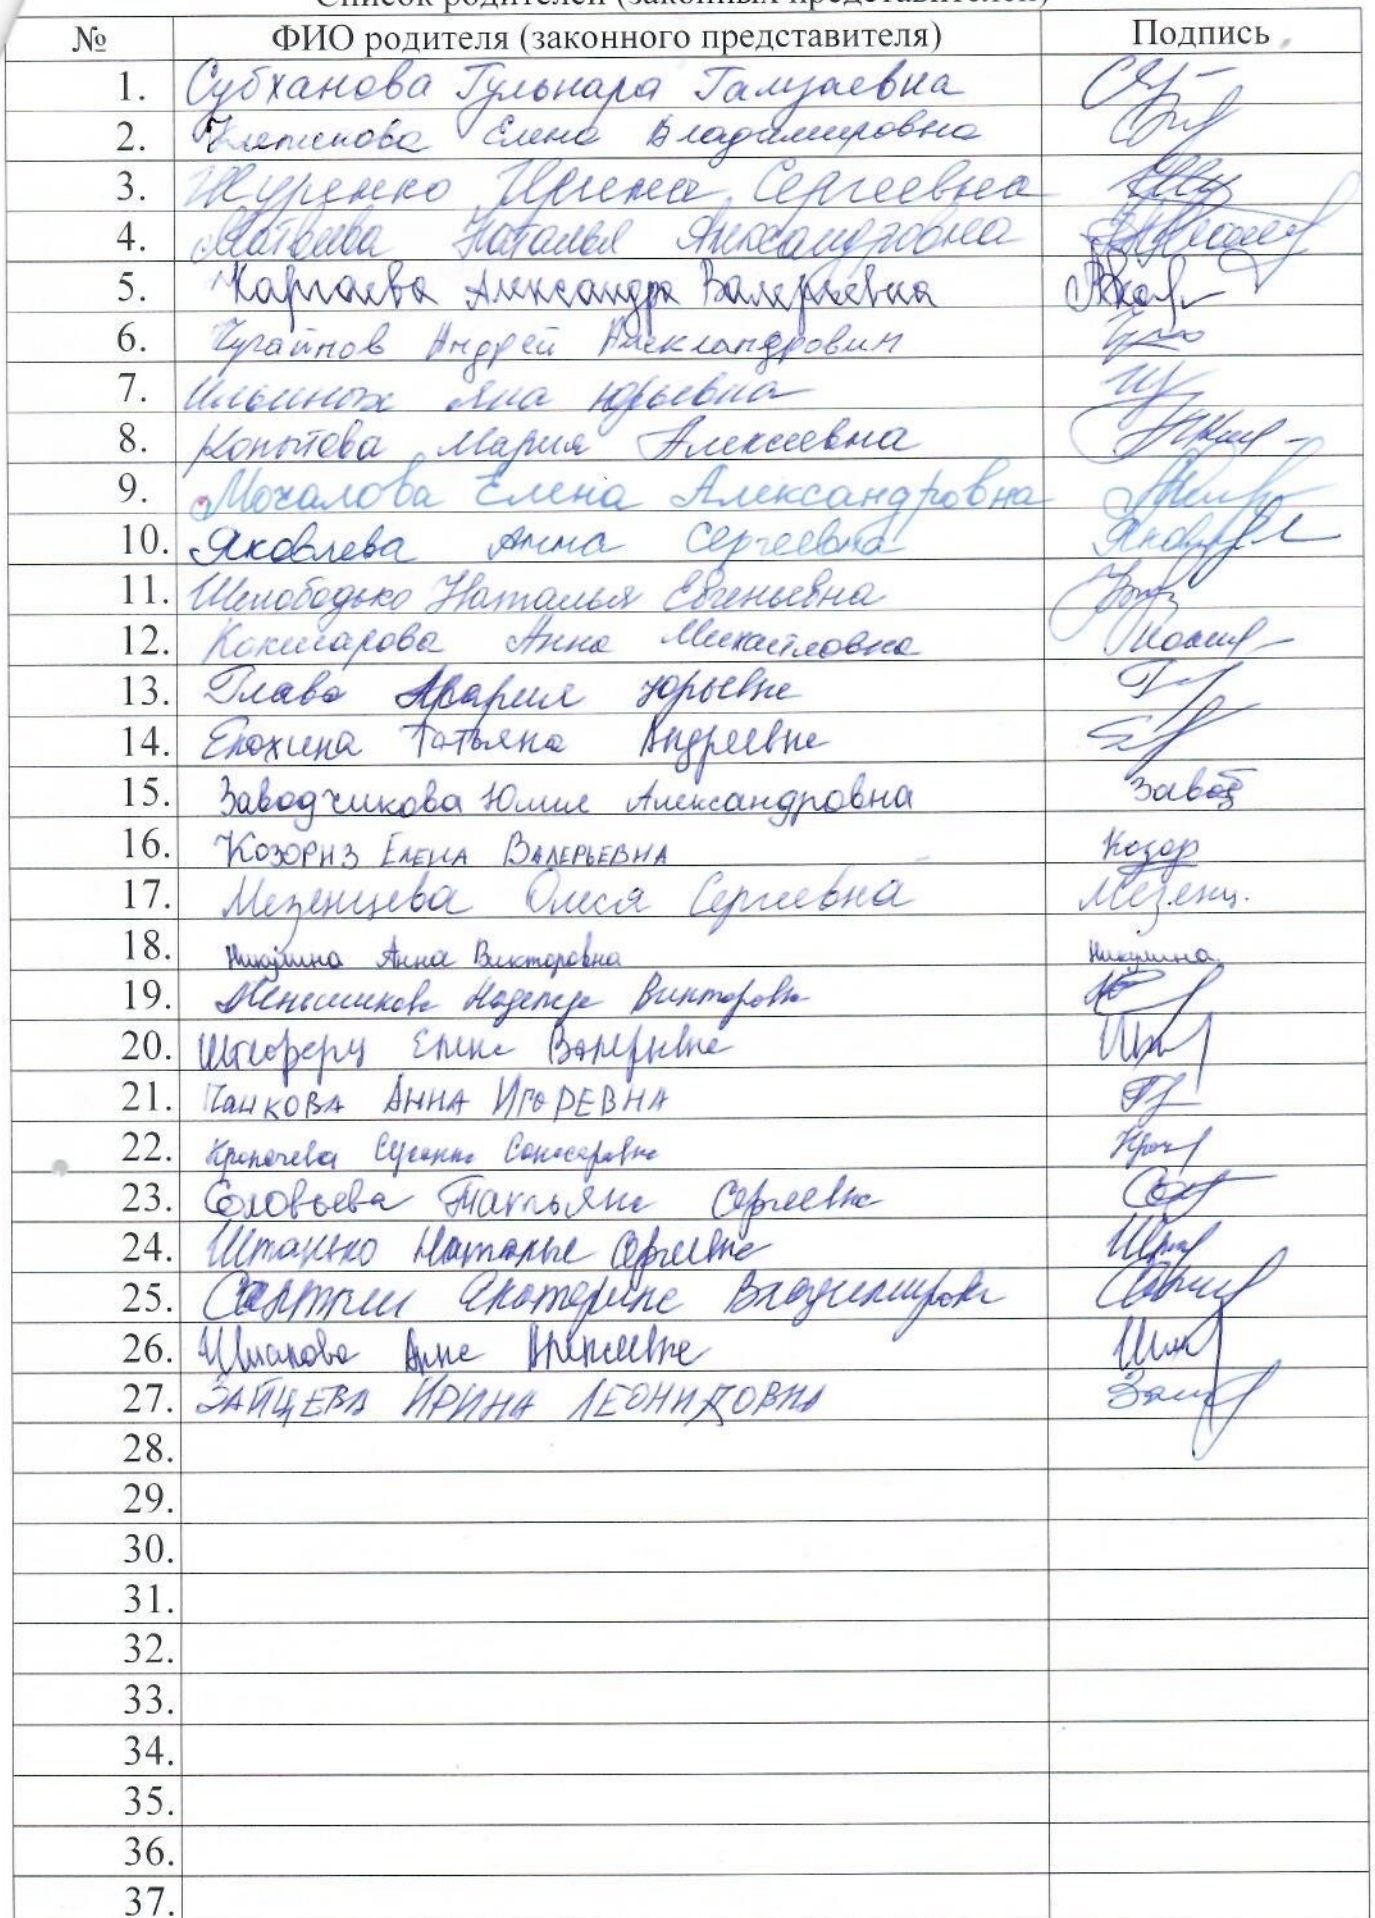 Список родителей (законных представителей)
№ ФИО родителя (законного представителя) Подпись
1. Субханова Гульнара
2. Елена Владимировна
3. Журенко Ирина Сергеевна
4. Матвеева Наталья Александровна
5. Каргаева Александра Валерьевна
6. Чугайнов Андрей Александрович
7. Ильиных Яна Юрьевна
8. Копытова Мария Алексеевна
9. Мочалова Елена Александровна
10. Яковлева Анна Сергеевна
11. Шелободько Наталья Евгеньевна
12. Кокшарова Анна Михайловна
13. Глава Мария Юрьевна
14. Елохина Татьяна Андреевна
15. Заводчикова Юлия Александровна Завод
16. Козориз Елена Валерьевна Козор
17. Мезенцева Олеся Сергеевна Мезенц.
18. Никулина Анна Викторовна Никулина
19. Меньшикова Надежда Викторовна
20. Елена Валерьевна
21. Панкова Анна Игоревна
22. Кропачева Сусанна
23. Соловьева Татьяна Сергеевна
24. Штанько Наталья Сергеевна
25. Екатерина Владимировна
26. Анна Алексеевна
27. Зайцева Ирина Леонидовна
28.
29.
30.
31.
32.
33.
34.
35.
36.
37.